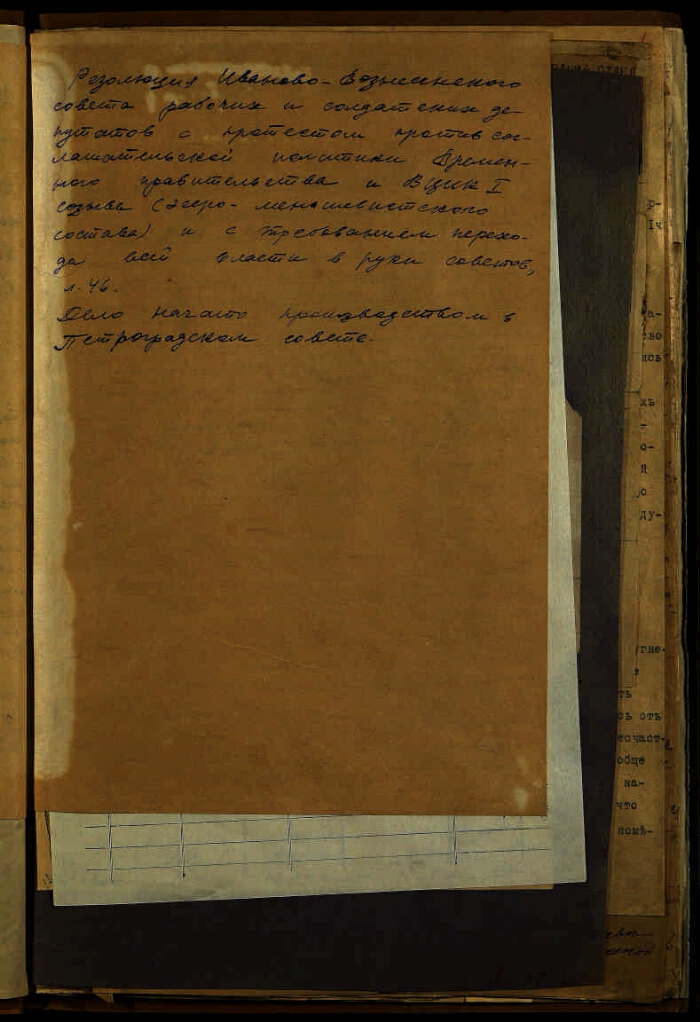 Резолюция Иваново-Вознесенского
совета рабочих и солдатских де-
путатов с протестом против сог-
лашательской политики Времен-
ного правительства и ВЦИК I
созыва (эсеро-меньшевистского
состава) и с требованием перехо-
да всей власти в руки советов,
л. 46.
Дело начато производством в
Петроградском совете.
р-
а-
хъ
-
о-
й
о
ду-
ть
сь отъ
обще
на-
что